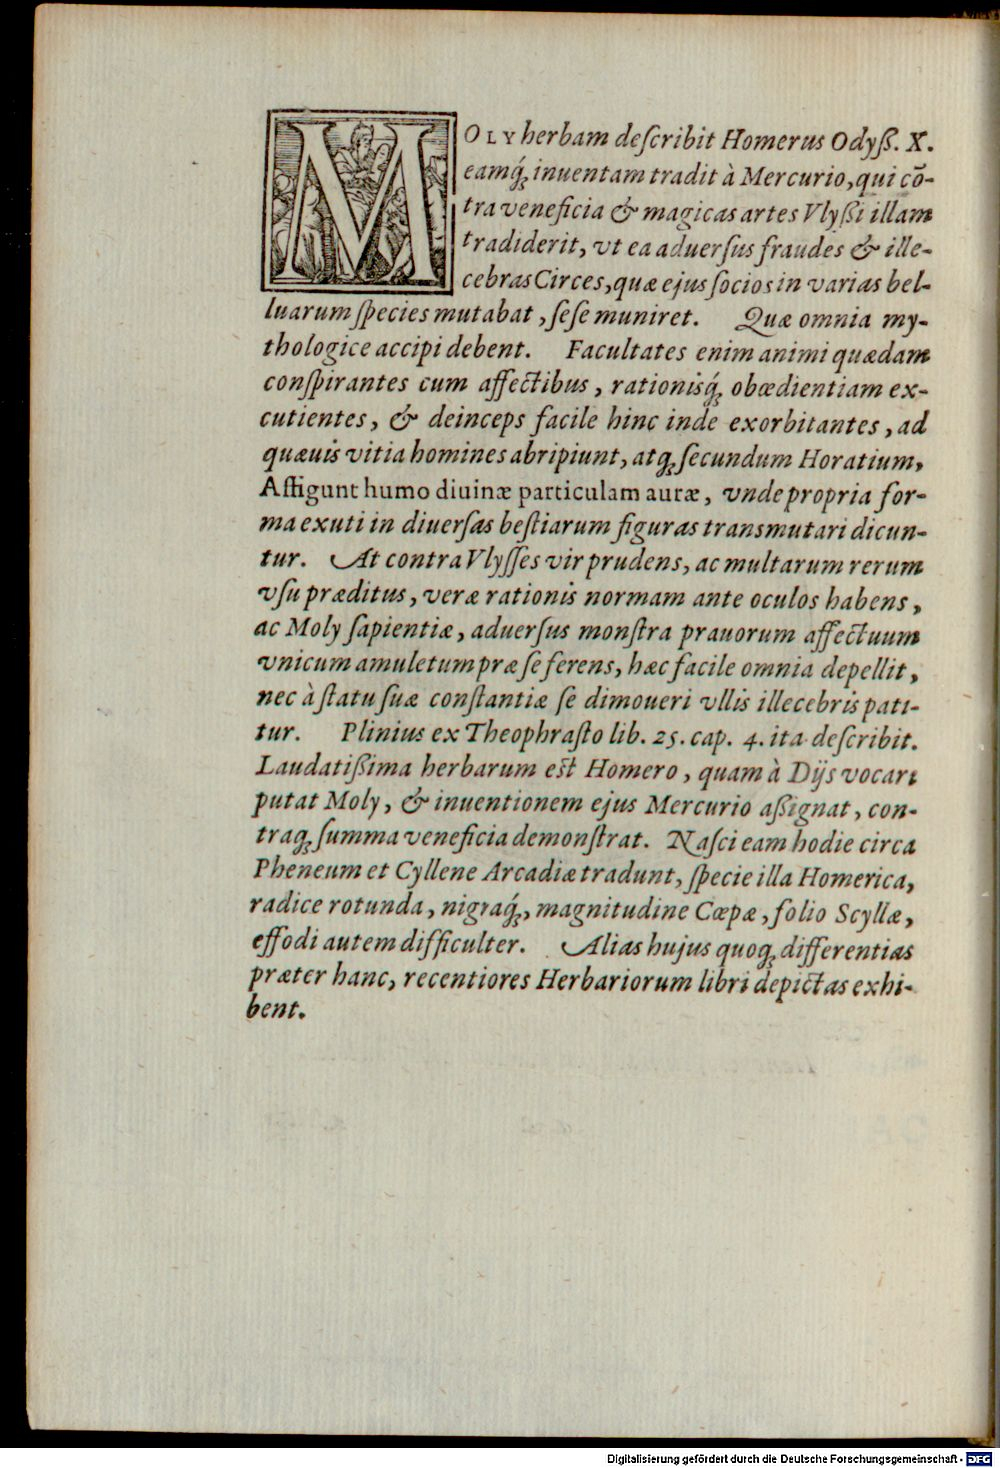 MOLY herbam deſcribit Homerus Odyß. X.
eamq́; inuentam tradit à Mercurio, qui cō-
tra veneficia & magicas artes Vlyßi illam
tradiderit, vt ea aduerſus fraudes & ille-
cebras Circes, quæ ejus ſocios in varias bel-
luarum ſpecies mutabat, ſeſe muniret. Quæ omnia my-
thologice accipi debent. Facultates enim animi quædam
conſpirantes cum affectibus, rationisq́; obœdientiam ex-
cutientes, & deinceps facile hinc inde exorbitantes, ad
quæuis vitia homines abripiunt, atq; ſecundum Horatium,
Affigunt humo diuinæ particulam auræ, vnde propria for-
ma exuti in diuerſas beſtiarum figuras transmutari dicun-
tur. At contra Vlyſſes vir prudens, ac multarum rerum
vſu præditus, veræ rationis normam ante oculos habens,
ac Moly ſapientiæ, aduerſus monſtra prauorum affectuum
vnicum amuletum præ ſe ferens, hæc facile omnia depellit,
nec à ſtatu ſuæ conſtantiæ ſe dimoueri vllis illecebris pati-
tur. Plinius ex Theophraſto lib. 25. cap. 4. ita deſcribit.
Laudatißima herbarum eſt Homero, quam à Dijs vocari
putat Moly, & inuentionem ejus Mercurio aßignat, con-
traq; ſumma veneficia demonſtrat. Naſci eam hodie circa
Pheneum et Cyllene Arcadiæ tradunt, ſpecie illa Homerica,
radice rotunda, nigraq́;, magnitudine Cœpæ, folio Scyllæ,
effodi autem difficulter. Alias hujus quoq; differentias
præter hanc, recentiores Herbariorum libri depictas exhi-
bent.
Digitalisierung gefördert durch die Deutsche Forschungsgemeinschaft - DFG